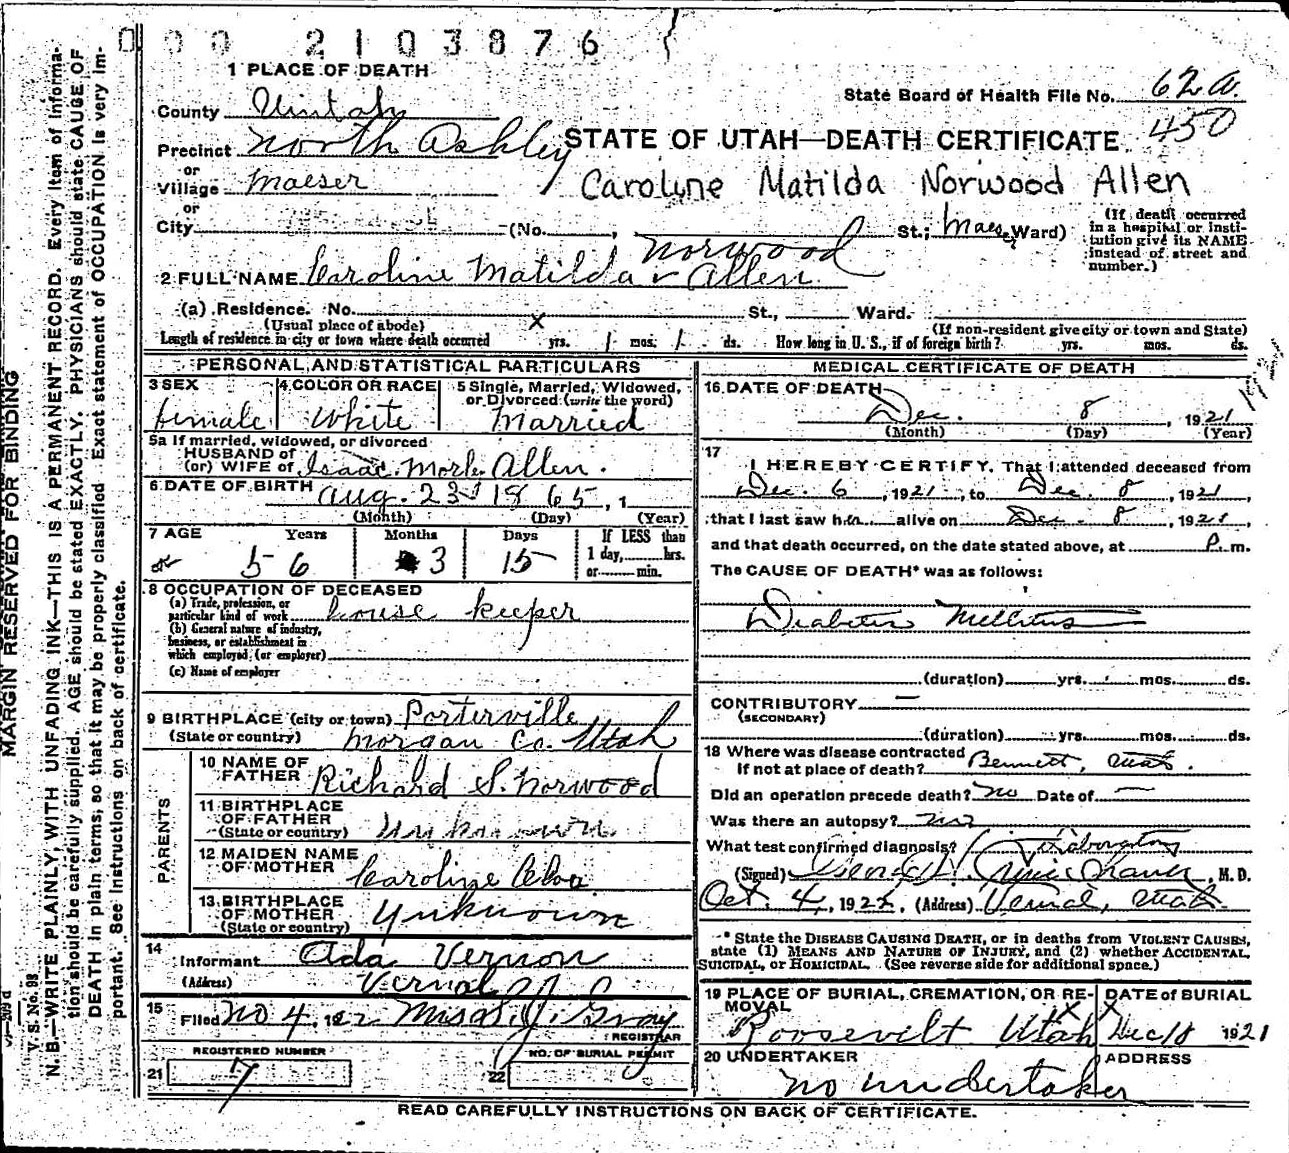 000 2103876
1 PLACE OF DEATH
County Uintah
State Board of Health File No. 62 a.
450
Precinct North Ashley
STATE OF UTAH—DEATH CERTIFICATE
or
Village Maeser
Caroline Matilda Norwood Allen
or
City (No. , St.; Maeser Ward)
(If death occurred in a hospital or institution give its NAME instead of street and number.)
Norwood
2 FULL NAME Caroline Matilda Allen
(a) Residence. No. St., Ward.
(Usual place of abode) x (If non-resident give city or town and State)
Length of residence in city or town where death occurred yrs. 1 mos. 1 ds. How long in U. S., if of foreign birth? yrs. mos. ds.
PERSONAL AND STATISTICAL PARTICULARS
3 SEX
female
4 COLOR OR RACE
White
5 Single, Married, Widowed, or Divorced (write the word)
Married
5a If married, widowed, or divorced
HUSBAND of
(or) WIFE of Isaac Allen.
6 DATE OF BIRTH Aug. 23 1865, 1
(Month) (Day) (Year)
7 AGE Years Months Days If LESS than
56 3 15 1 day, hrs.
or min.
8 OCCUPATION OF DECEASED
(a) Trade, profession, or
particular kind of work house keeper
(b) General nature of industry,
business, or establishment in
which employed (or employer)
(c) Name of employer
9 BIRTHPLACE (city or town) Porterville
(State or country) Morgan Co. Utah
PARENTS
10 NAME OF
FATHER Richard S. Norwood
11 BIRTHPLACE
OF FATHER
(State or country) Unknown
12 MAIDEN NAME
OF MOTHER Caroline
13 BIRTHPLACE
OF MOTHER
(State or country) Unknown
14
Informant Ada Vernon
(Address) Vernal
15
Filed No 4, 1922 S. J. Gray
REGISTRAR
REGISTERED NUMBER
21 7
NO. OF BURIAL PERMIT
22
MEDICAL CERTIFICATE OF DEATH
16 DATE OF DEATH
Dec. 8, 1921
(Month) (Day) (Year)
17
I HEREBY CERTIFY, That I attended deceased from
Dec. 6, 1921, to Dec. 8, 1921,
that I last saw her alive on Dec. 8, 1921,
and that death occurred, on the date stated above, at P. m.
The CAUSE OF DEATH* was as follows:
Diabetes Mellitus
(duration) yrs. mos. ds.
CONTRIBUTORY —
(SECONDARY)
(duration) yrs. mos. ds.
18 Where was disease contracted
If not at place of death? Bennett, Utah.
Did an operation precede death? no Date of —
Was there an autopsy? no
What test confirmed diagnosis? Laboratory
(Signed) , M. D.
Oct. 4, 1922, (Address) Vernal, Utah.
* State the DISEASE CAUSING DEATH, or in deaths from VIOLENT CAUSES,
state (1) MEANS AND NATURE OF INJURY, and (2) whether ACCIDENTAL,
SUICIDAL, or HOMICIDAL. (See reverse side for additional space.)
19 PLACE OF BURIAL, CREMATION, OR REMOVAL
Roosevelt Utah
DATE of BURIAL
Dec 10 1921
20 UNDERTAKER
no undertaker
ADDRESS
READ CAREFULLY INSTRUCTIONS ON BACK OF CERTIFICATE.
MARGIN RESERVED FOR BINDING
V. S. No. 98
N. B.—WRITE PLAINLY, WITH UNFADING INK—THIS IS A PERMANENT RECORD. Every item of informa-
tion should be carefully supplied. AGE should be stated EXACTLY. PHYSICIANS should state CAUSE OF
DEATH in plain terms, so that it may be properly classified. Exact statement of OCCUPATION is very im-
portant. See Instructions on back of certificate.